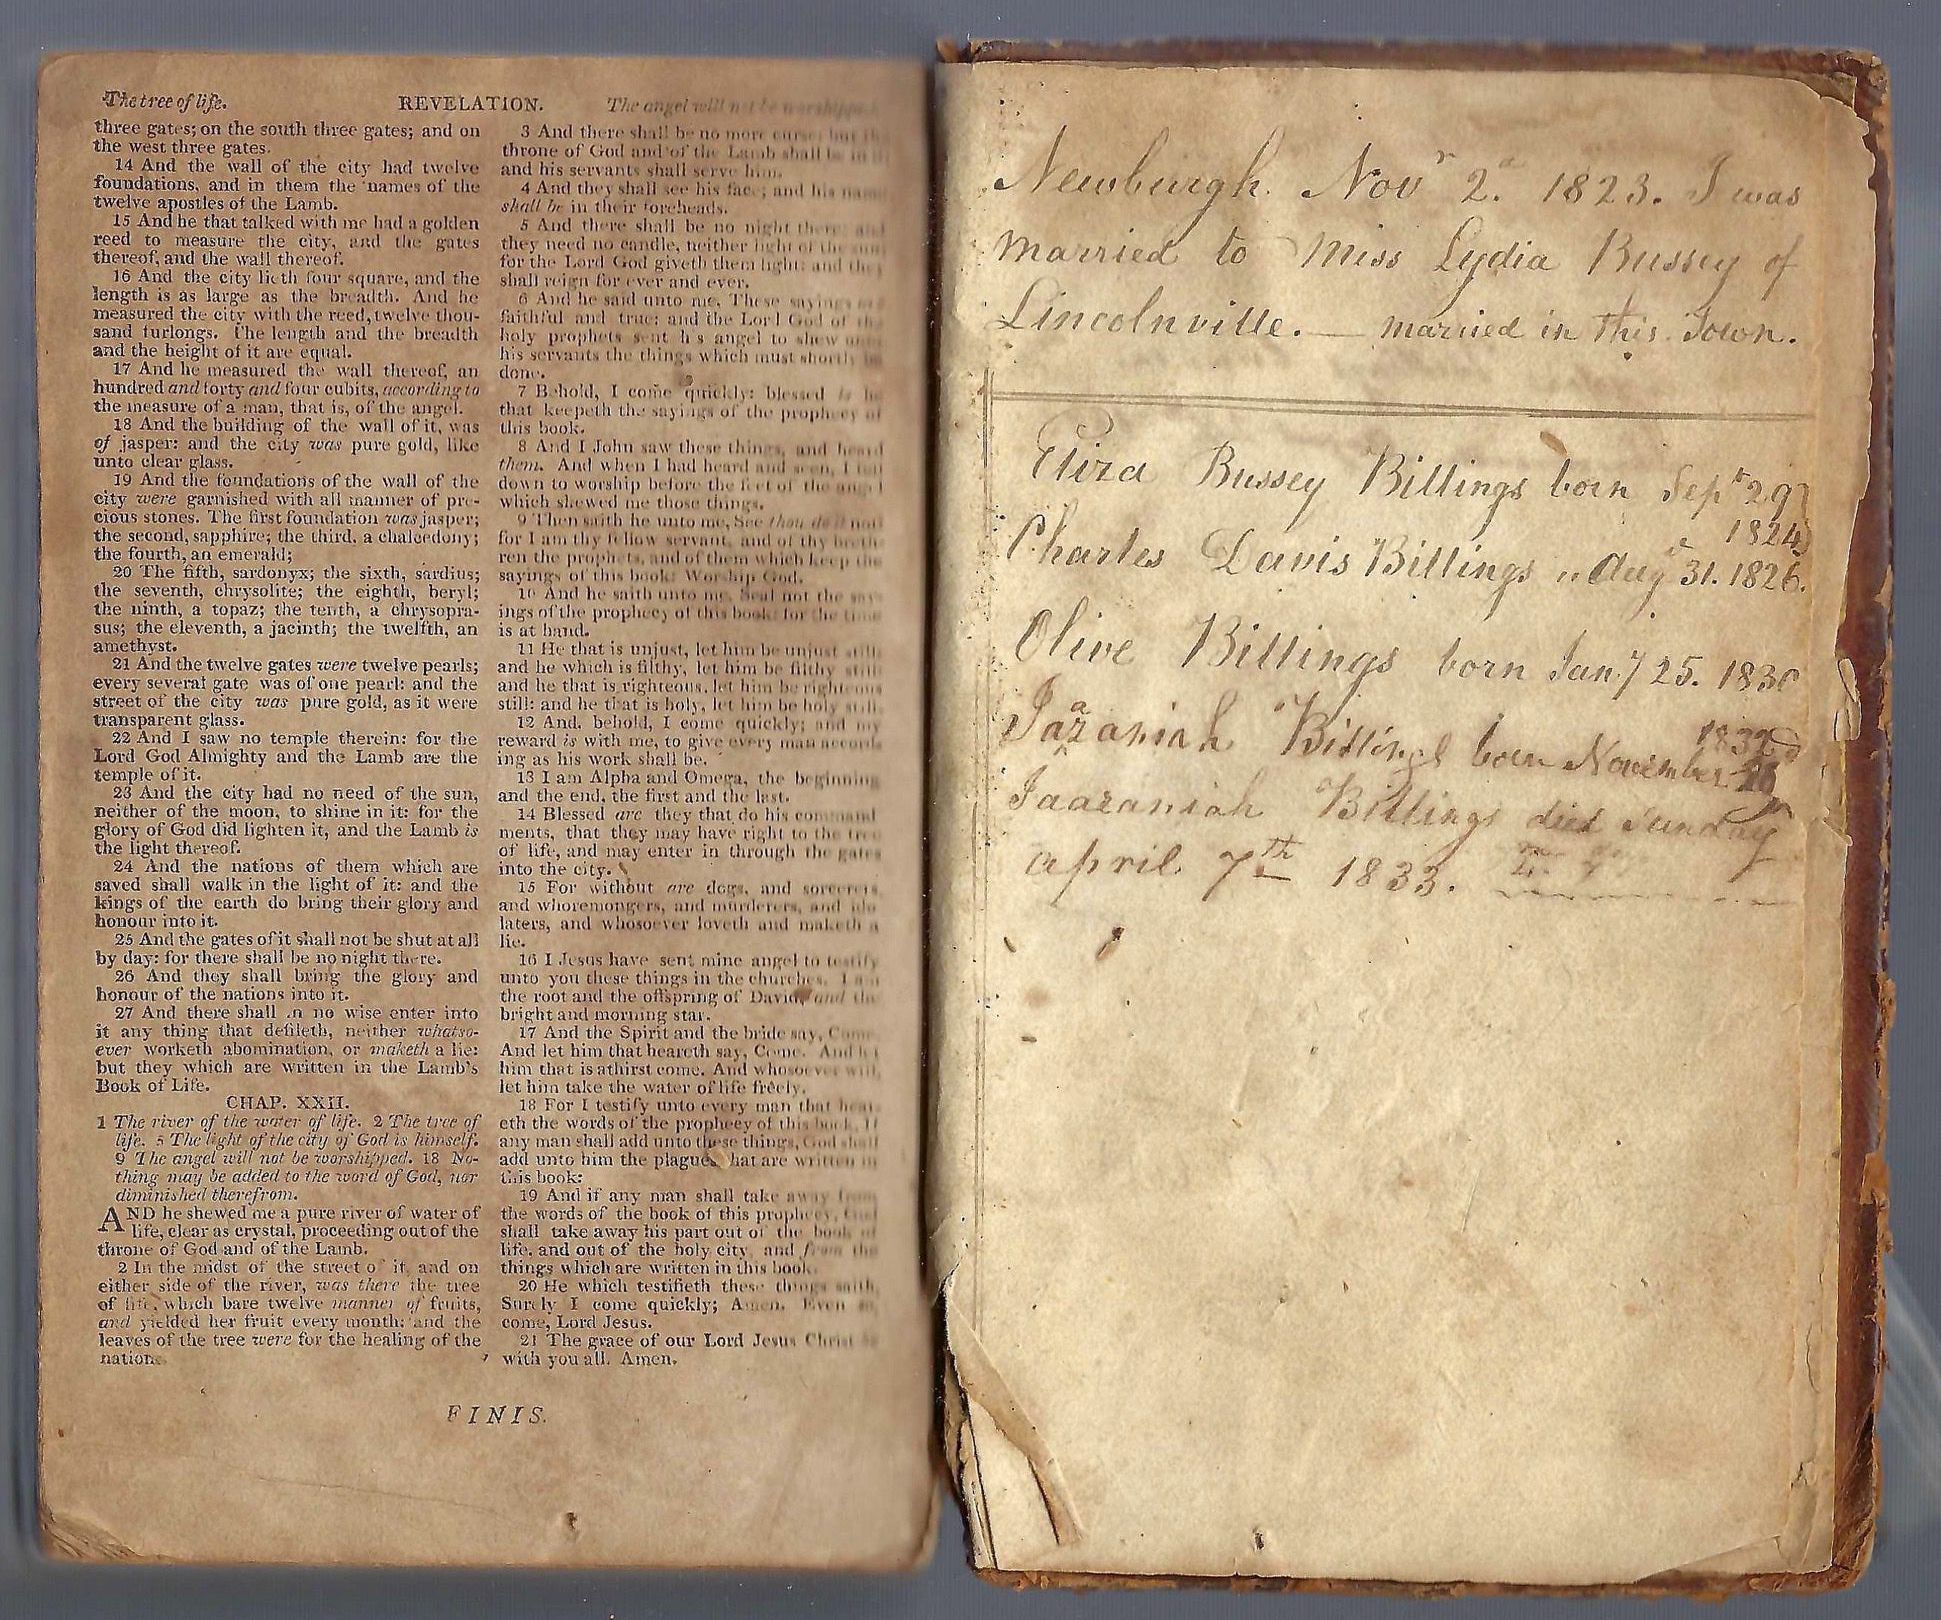 The tree of life.
REVELATION.
The angel will not be worshipped.
three gates; on the south three gates; and on
the west three gates.
14 And the wall of the city had twelve
foundations, and in them the names of the
twelve apostles of the Lamb.
15 And he that talked with me had a golden
reed to measure the city, and the gates
thereof, and the wall thereof.
16 And the city lieth four square, and the
length is as large as the breadth. And he
measured the city with the reed, twelve thou-
sand furlongs. The length and the breadth
and the height of it are equal.
17 And he measured the wall thereof, an
hundred and forty and four cubits, according to
the measure of a man, that is, of the angel.
18 And the building of the wall of it, was
of jasper: and the city was pure gold, like
unto clear glass.
19 And the foundations of the wall of the
city were garnished with all manner of pre-
cious stones. The first foundation was jasper;
the second, sapphire; the third, a chalcedony;
the fourth, an emerald;
20 The fifth, sardonyx; the sixth, sardius;
the seventh, chrysolite; the eighth, beryl;
the ninth, a topaz; the tenth, a chrysopra-
sus; the eleventh, a jacinth; the twelfth, an
amethyst.
21 And the twelve gates were twelve pearls;
every several gate was of one pearl: and the
street of the city was pure gold, as it were
transparent glass.
22 And I saw no temple therein: for the
Lord God Almighty and the Lamb are the
temple of it.
23 And the city had no need of the sun,
neither of the moon, to shine in it: for the
glory of God did lighten it, and the Lamb is
the light thereof.
24 And the nations of them which are
saved shall walk in the light of it: and the
kings of the earth do bring their glory and
honour into it.
25 And the gates of it shall not be shut at all
by day: for there shall be no night there.
26 And they shall bring the glory and
honour of the nations into it.
27 And there shall in no wise enter into
it any thing that defileth, neither whatso-
ever worketh abomination, or maketh a lie:
but they which are written in the Lamb's
Book of Life.
CHAP. XXII.
1 The river of the water of life. 2 The tree of
life. 5 The light of the city of God is himself.
9 The angel will not be worshipped. 18 No-
thing may be added to the word of God, nor
diminished therefrom.
AND he shewed me a pure river of water of
life, clear as crystal, proceeding out of the
throne of God and of the Lamb.
2 In the midst of the street of it, and on
either side of the river, was there the tree
of life, which bare twelve manner of fruits,
and yielded her fruit every month: and the
leaves of the tree were for the healing of the
nations.
3 And there shall be no more curse: but the
throne of God and of the Lamb shall be in it;
and his servants shall serve him.
4 And they shall see his face; and his name
shall be in their foreheads.
5 And there shall be no night there; and
they need no candle, neither light of the sun;
for the Lord God giveth them light: and they
shall reign for ever and ever.
6 And he said unto me, These sayings are
faithful and true: and the Lord God of the
holy prophets sent his angel to shew unto
his servants the things which must shortly be
done.
7 Behold, I come quickly: blessed is he
that keepeth the sayings of the prophecy of
this book.
8 And I John saw these things, and heard
them. And when I had heard and seen, I fell
down to worship before the feet of the angel
which shewed me those things.
9 Then saith he unto me, See thou do it not:
for I am thy fellow servant, and of thy breth-
ren the prophets, and of them which keep the
sayings of this book: Worship God.
10 And he saith unto me, Seal not the say-
ings of the prophecy of this book: for the time
is at hand.
11 He that is unjust, let him be unjust still:
and he which is filthy, let him be filthy still:
and he that is righteous, let him be righteous
still: and he that is holy, let him be holy still.
12 And, behold, I come quickly; and my
reward is with me, to give every man accord-
ing as his work shall be.
13 I am Alpha and Omega, the beginning
and the end, the first and the last.
14 Blessed are they that do his command
ments, that they may have right to the tree
of life, and may enter in through the gates
into the city.
15 For without are dogs, and sorcerers,
and whoremongers, and murderers, and ido
laters, and whosoever loveth and maketh a
lie.
16 I Jesus have sent mine angel to testify
unto you these things in the churches. I am
the root and the offspring of David, and the
bright and morning star.
17 And the Spirit and the bride say, Come.
And let him that heareth say, Come. And let
him that is athirst come. And whosoever will,
let him take the water of life freely.
18 For I testify unto every man that hear-
eth the words of the prophecy of this book, If
any man shall add unto these things, God shall
add unto him the plagues that are written in
this book:
19 And if any man shall take away from
the words of the book of this prophecy, God
shall take away his part out of the book of
life, and out of the holy city, and from the
things which are written in this book.
20 He which testifieth these things saith,
Surely I come quickly; Amen. Even so,
come, Lord Jesus.
21 The grace of our Lord Jesus Christ be
with you all. Amen.
FINIS.
Newburgh Nov<sup>r</sup> 2.<sup>d</sup> 1823. I was
married to Miss Lydia Bussey of
Lincolnville. — married in this Town.
Eliza Bussey Billings born Sep<sup>t</sup> 29
1824
Charles Davis Billings " Aug 31. 1826.
Olive Billings born Jan.y 25. 1830
1832
Jaazaniah Billings born November 16
Jaazaniah Billings died Sunday
April 7th 1833.